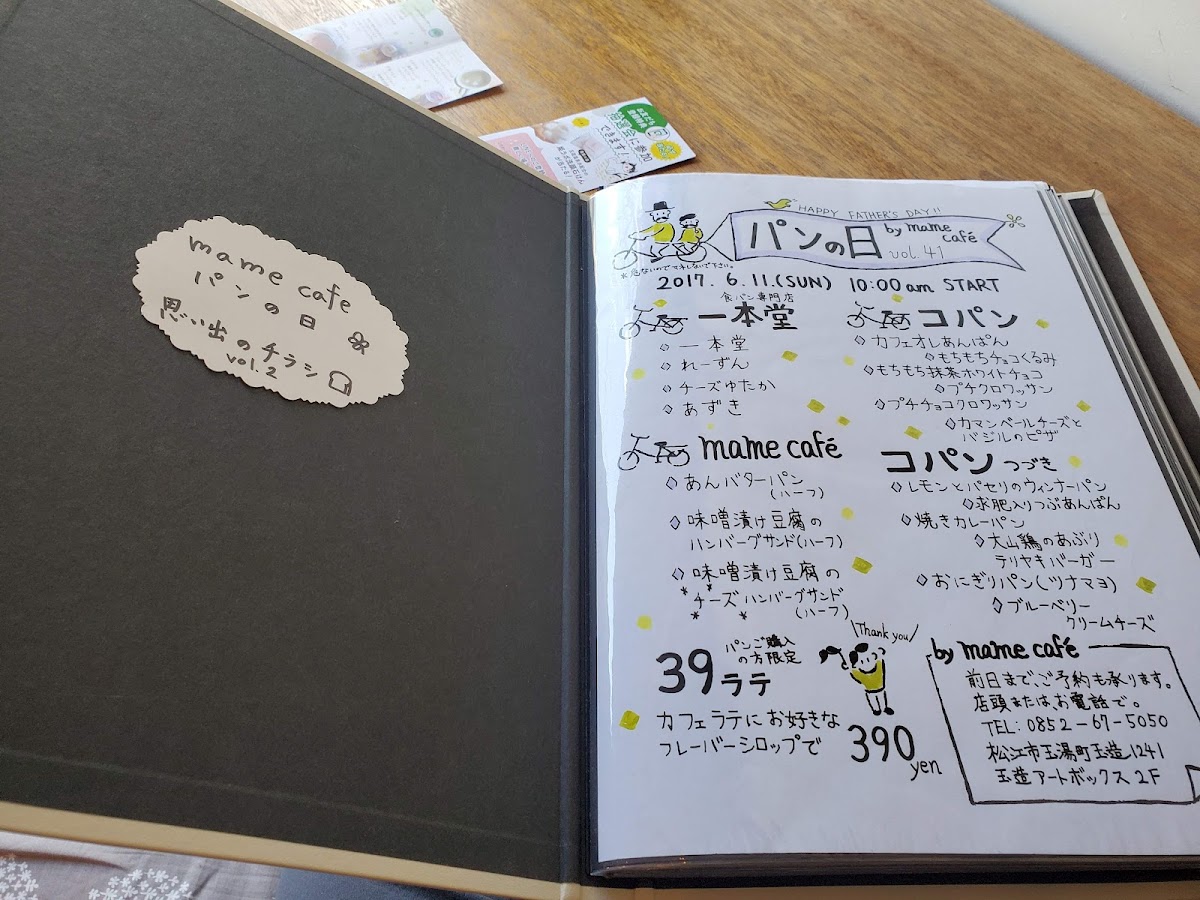 mame cafe
パンの日
思い出のチラシ
vol.2
お友だち
登録特典
抽選会に参加
できます!
HAPPY FATHER'S DAY!!
パンの日 by mame café
vol.41
*危ないのでマネしないで下さい。
2017.6.11.(SUN) 10:00am START
食パン専門店
一本堂
◇一本堂
◇れーずん
◇チーズゆたか
◇あずき
mame café
◇あんバターパン
(ハーフ)
◇味噌漬け豆腐の
ハンバーグサンド(ハーフ)
◇味噌漬け豆腐の
*チーズ*ハンバーグサンド
(ハーフ)
コパン
◇カフェオレあんぱん
◇もちもちチョコくるみ
◇もちもち抹茶ホワイトチョコ
◇プチクロワッサン
◇プチチョコクロワッサン
◇カマンベールチーズと
バジルのピザ
コパン つづき
◇レモンとパセリのウィンナーパン
◇求肥入りつぶあんぱん
◇焼きカレーパン
◇大山鶏のあぶり
テリヤキバーガー
◇おにぎりパン(ツナマヨ)
◇ブルーベリー
クリームチーズ
パンご購入
の方限定
39ラテ
Thank you
カフェラテにお好きな
フレーバーシロップで
390yen
by mame café
前日までご予約も承ります。
店頭またはお電話で。
TEL:0852-67-5050
松江市玉湯町玉造1241
玉造アートボックス2F